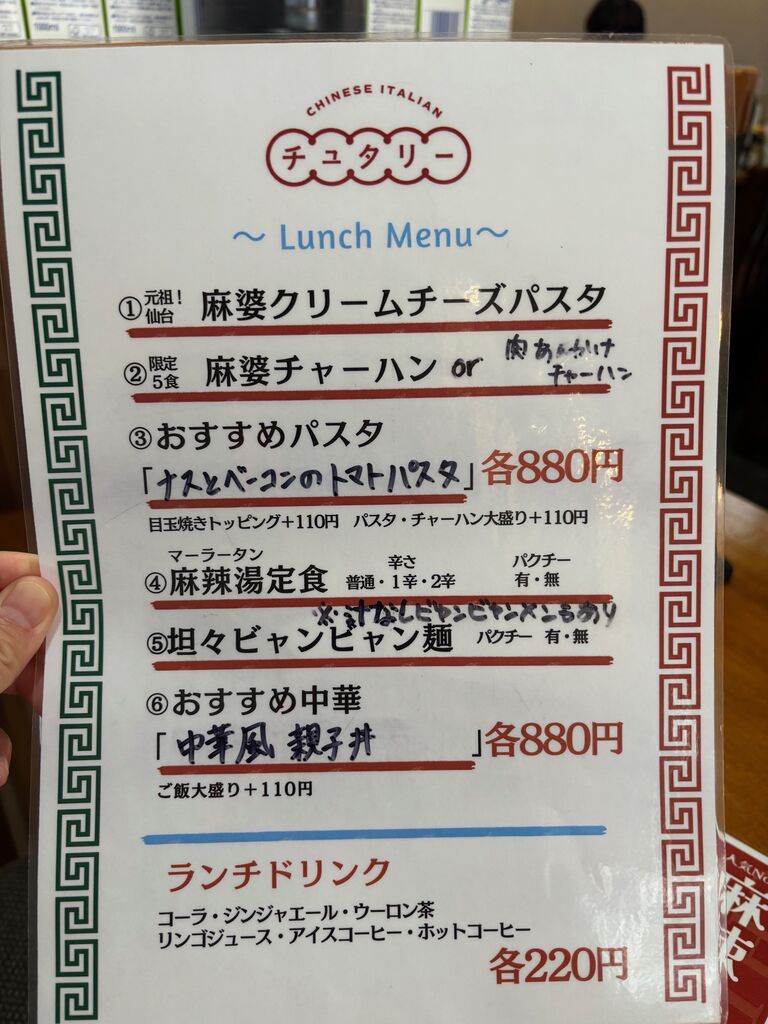 CHINESE ITALIAN
チュタリー
～ Lunch Menu～
①元祖！仙台 麻婆クリームチーズパスタ
②限定5食 麻婆チャーハン or 肉あんかけチャーハン
③おすすめパスタ
「ナスとベーコンのトマトパスタ」各880円
目玉焼きトッピング＋110円 パスタ・チャーハン大盛り＋110円
マーラータン 辛さ パクチー
④麻辣湯定食 普通・1辛・2辛 有・無
※汁なしビャンビャンメンもあり
⑤坦々ビャンビャン麺 パクチー 有・無
⑥おすすめ中華
「中華風 親子丼」各880円
ご飯大盛り＋110円
ランチドリンク
コーラ・ジンジャエール・ウーロン茶
リンゴジュース・アイスコーヒー・ホットコーヒー
各220円
人気No
麻